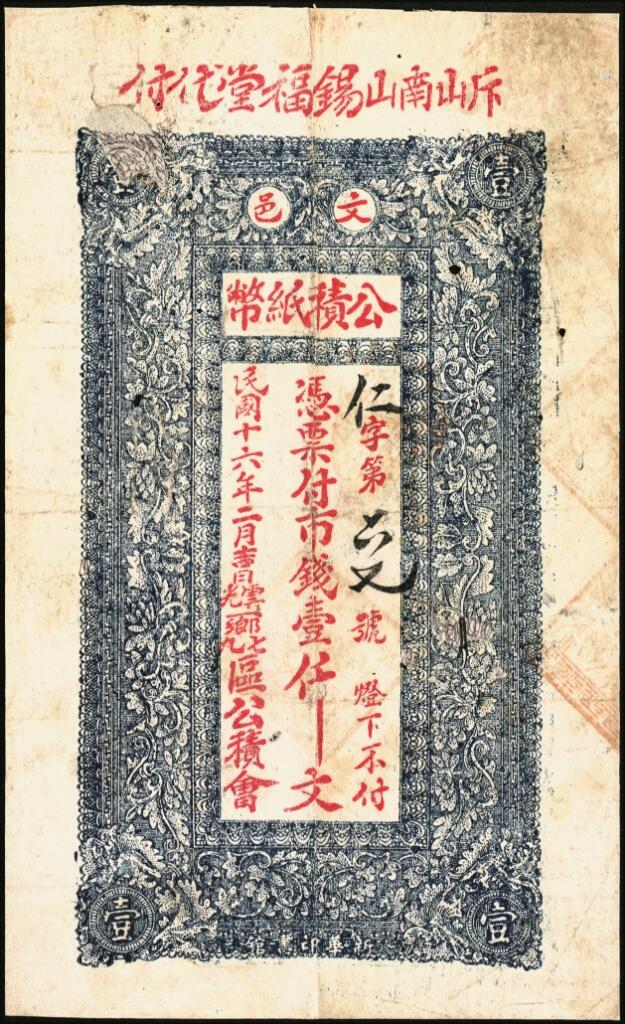 斥山南山錫福堂代付
壹
文邑
公積紙幣
仁字第號 燈下不付
憑票付市錢壹仟文
民國十六年二月吉日 雲光鄉七九區公積會
壹
壹
新華印書館